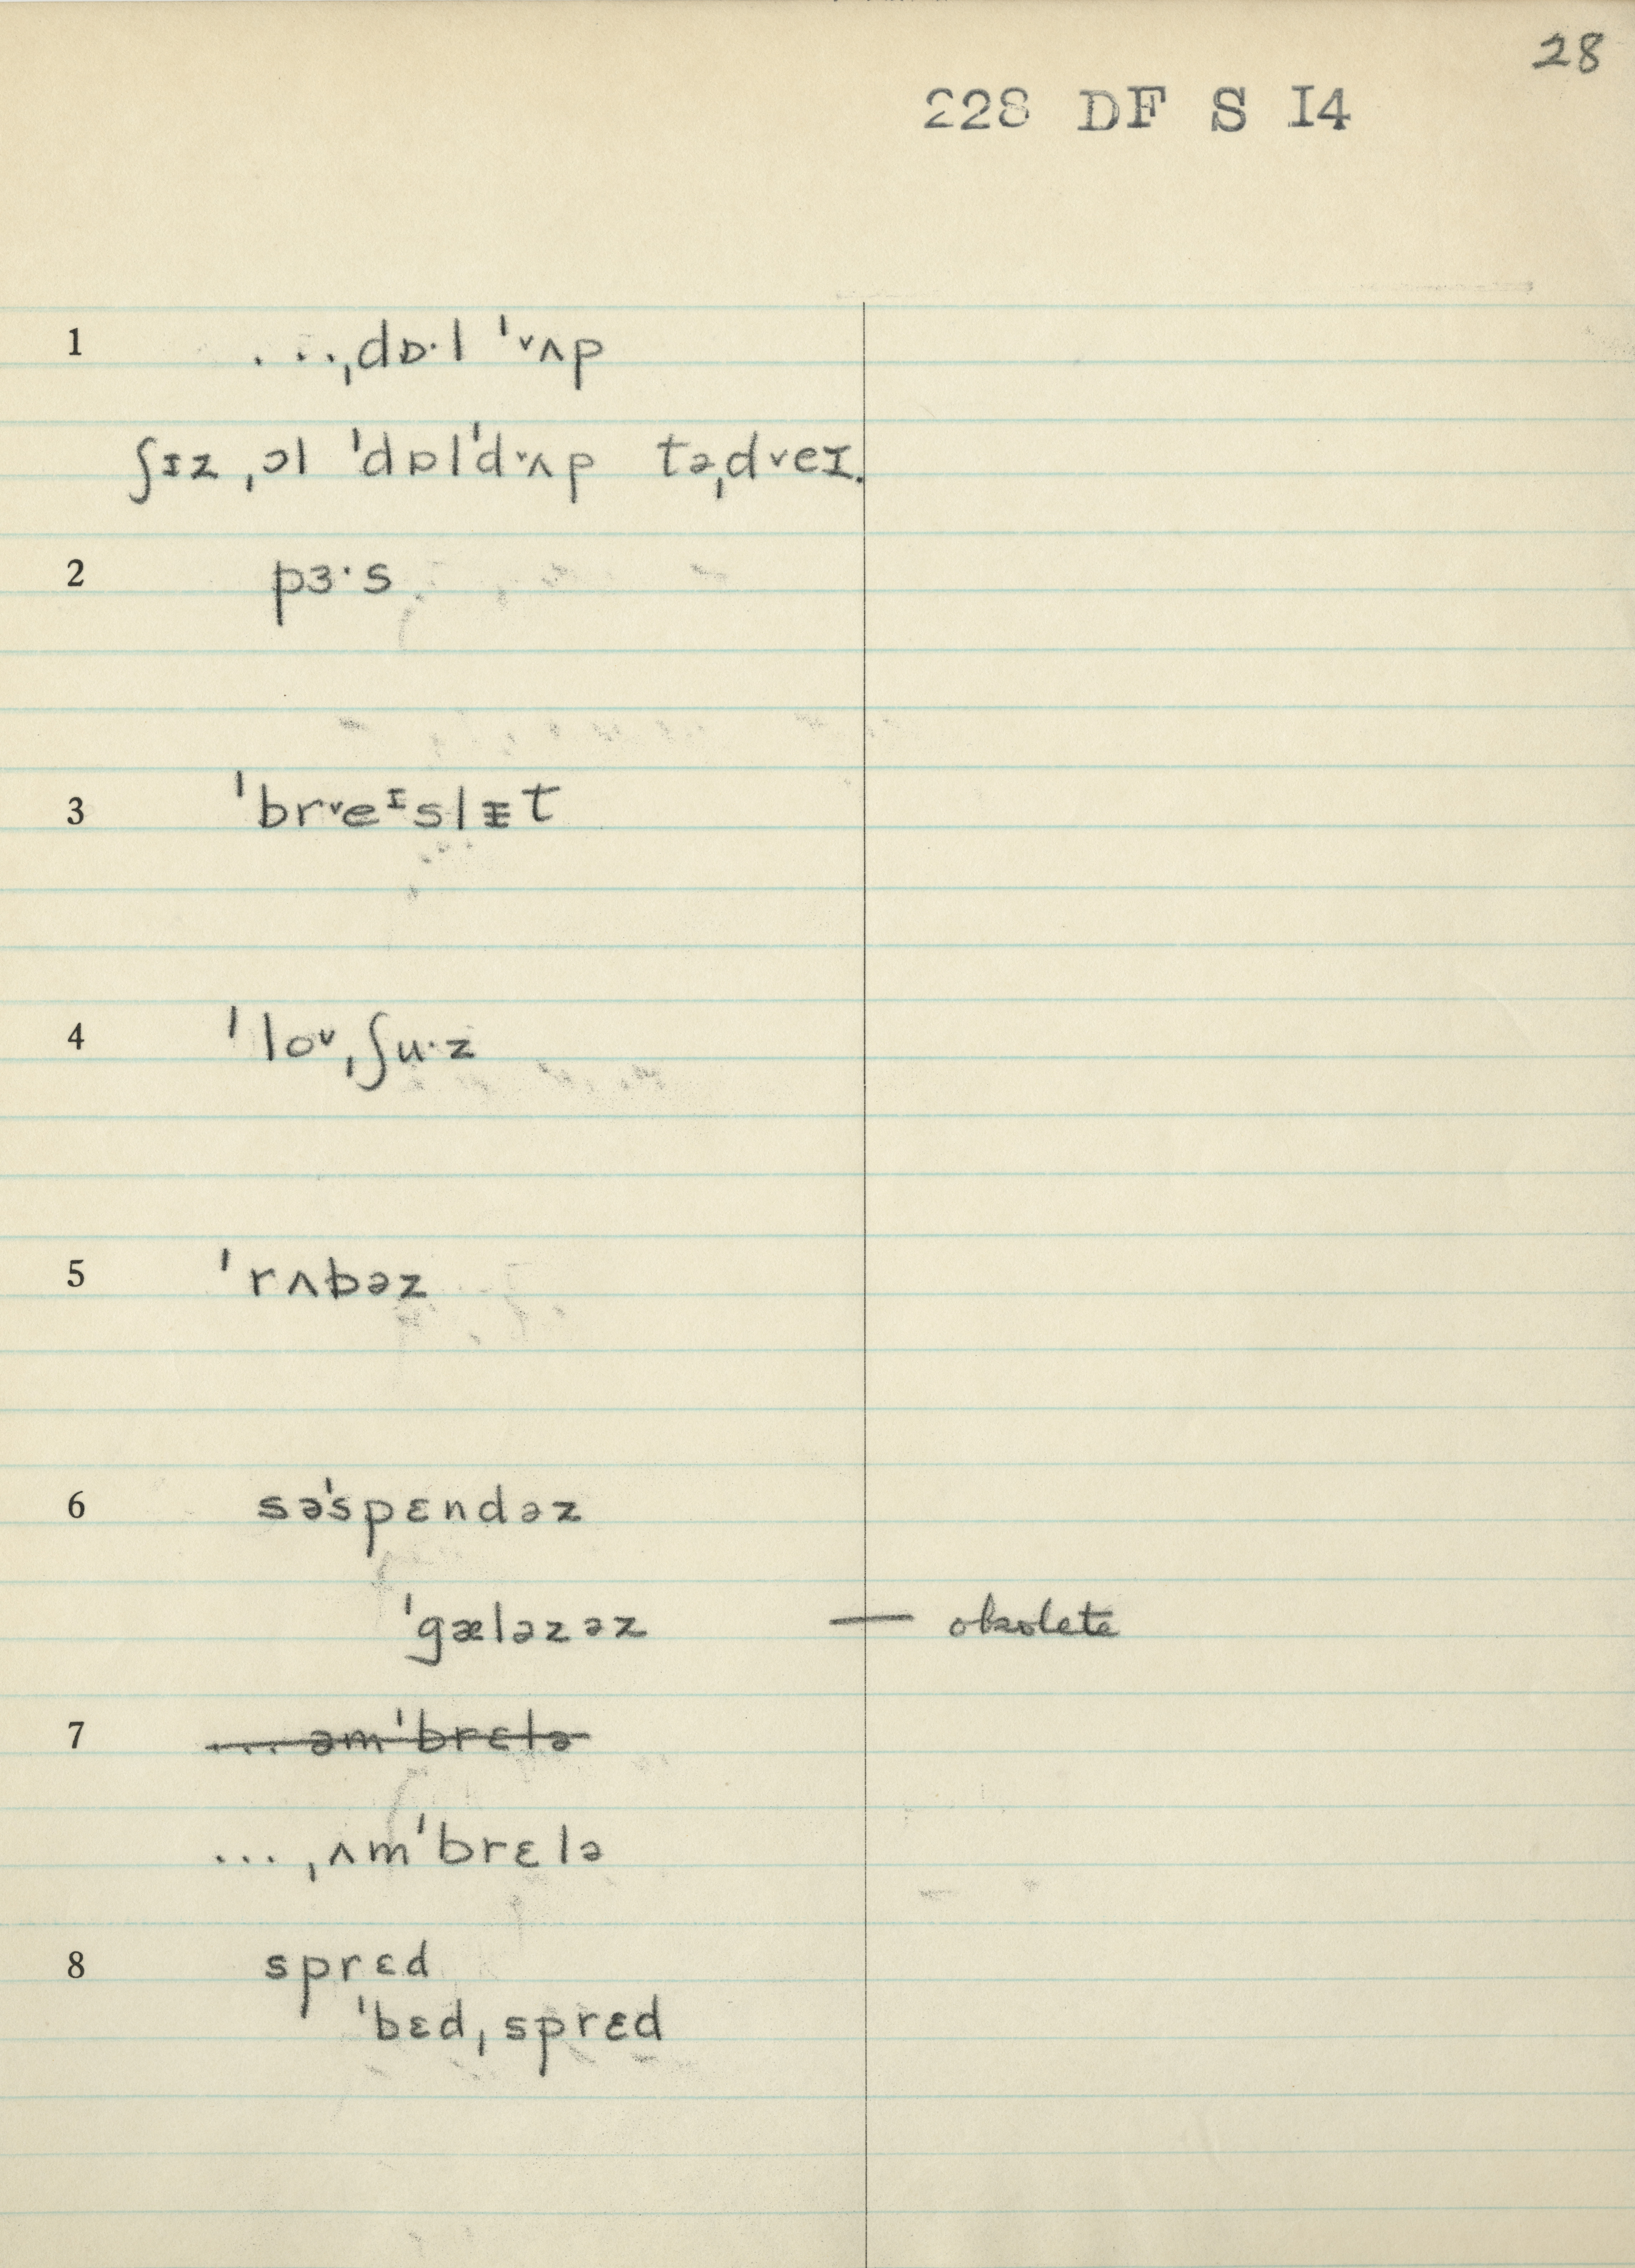 28
228 DF S I4
1 ...ˌdɒ·l ˈ˅ʌp
ʃɪz ˌɔl ˈdɒlˈd˅ʌp təˌd˅eɪ.
2 pɜ·s
3 ˈbr˅eᶦslᵻt
4 ˈloᶹˌʃu·z
5 ˈrʌbəz
6 səˈspɛndəz
ˈgæləzəz — obsolete
7 ... əmˈbrɛlə
... ˌʌmˈbrɛlə
8 sprɛd
ˈbɛdˌsprɛd